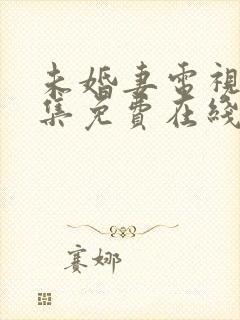 未婚妻電視
集免費在綫
賽娜